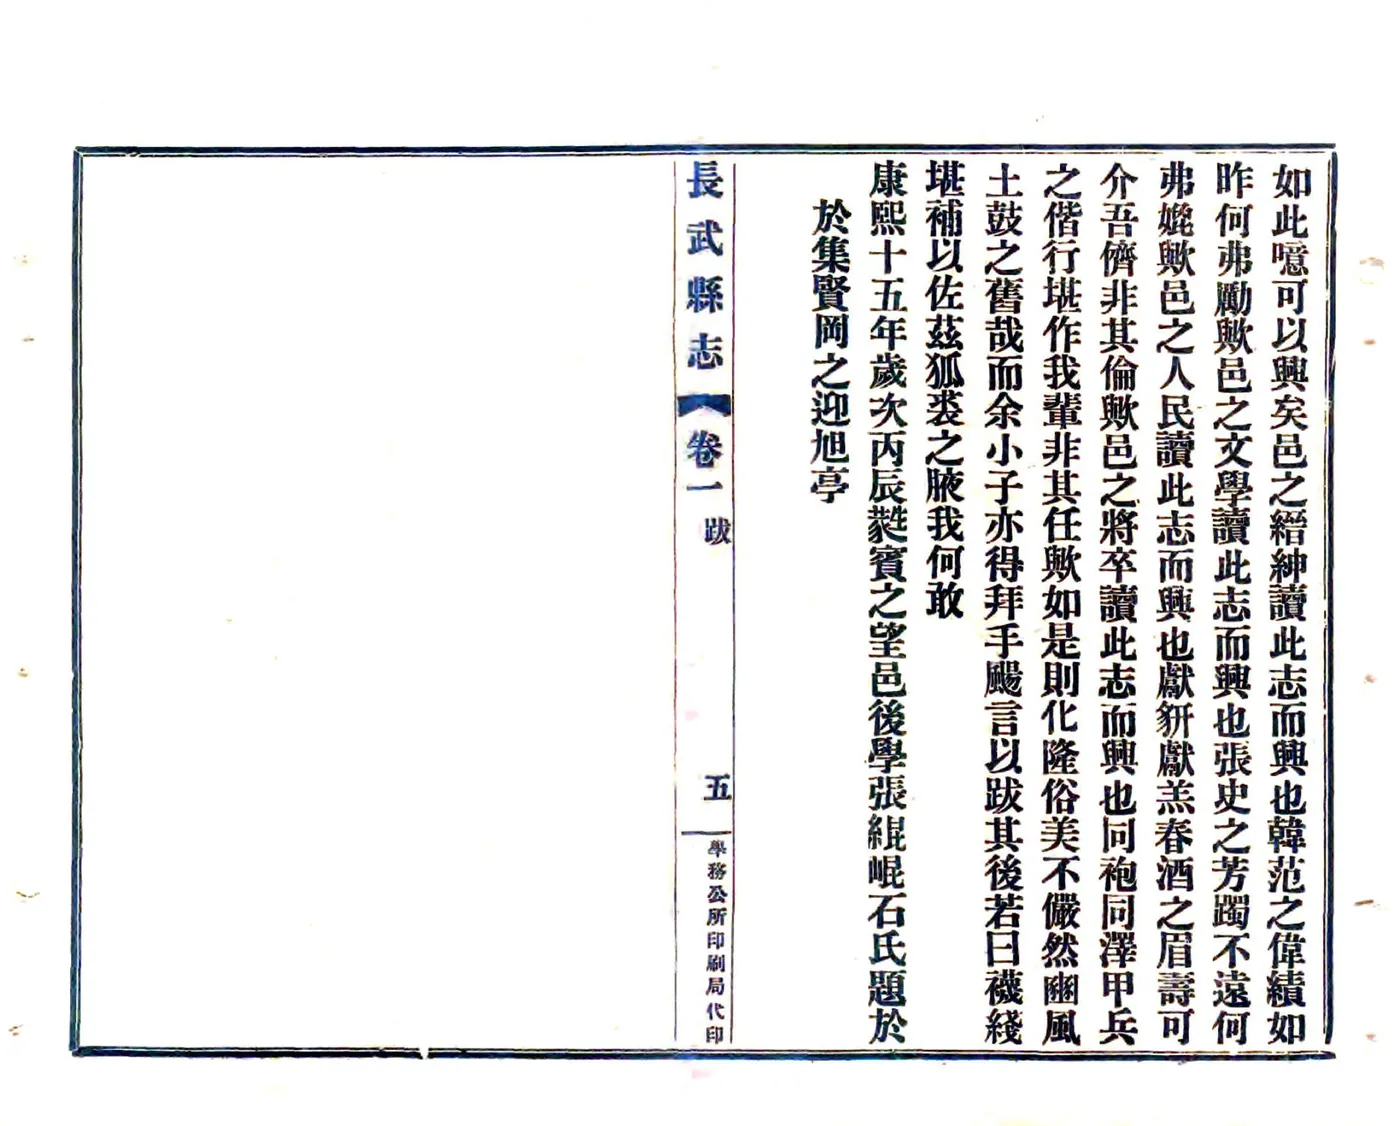 如此噫可以興矣邑之縉紳讀此志而興也韓范之偉績如
昨何弗勵歟邑之文學讀此志而興也張史之芳躅不遠何
弗媲歟邑之人民讀此志而興也獻豜獻羔春酒之眉壽可
介吾儕非其倫歟邑之將卒讀此志而興也同袍同澤甲兵
之偕行堪作我輩非其任歟如是則化隆俗美不儼然豳風
土鼓之舊哉而余小子亦得拜手颺言以跋其後若曰襪綫
堪補以佐茲狐裘之腋我何敢
康熙十五年歲次丙辰蕤賓之望邑後學張緄崐石氏題於
於集賢岡之迎旭亭
長武縣志 卷一 跋 五 學務公所印刷局代印